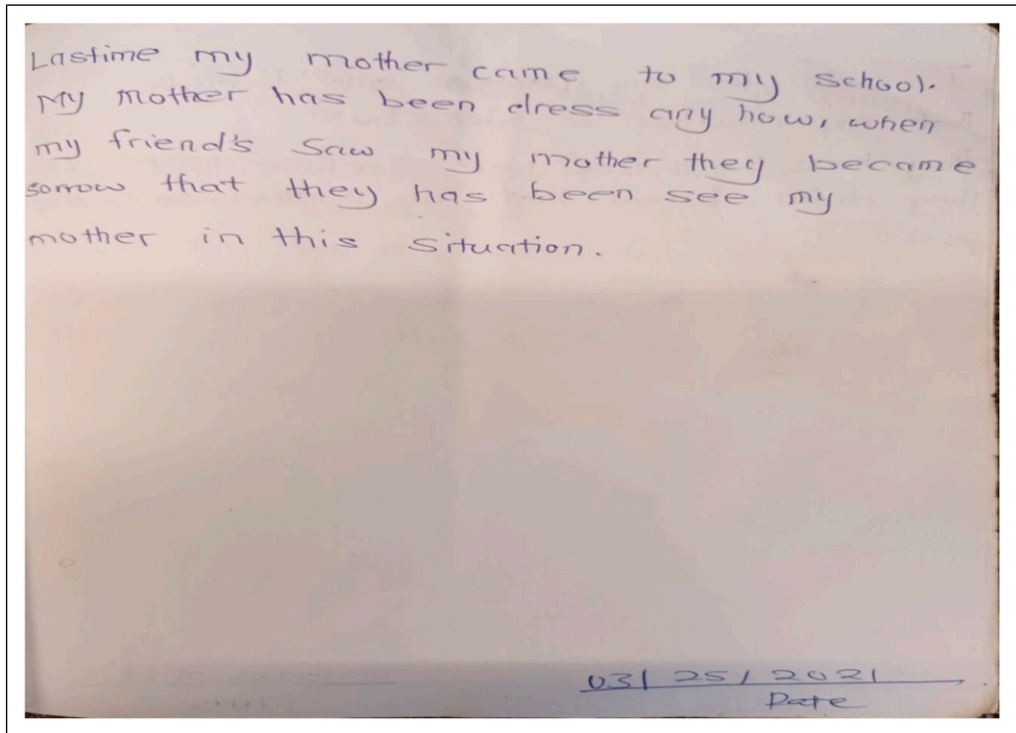 Lastime my mother came to my school.
My Mother has been dress any how, when
my friend's saw my mother they became
sorrow that they has been see my
mother in this situation.
03/25/2021
Date